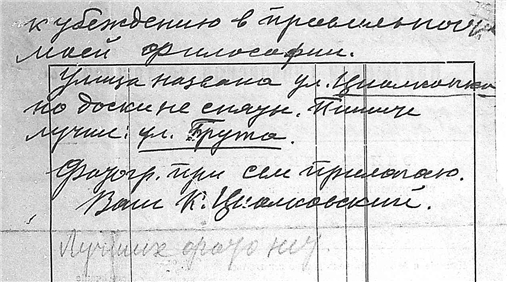 к убеждению в правильности
моей философии.
Улица названа ул. Циолковско
но доски не сняты. Пишите
лучше: ул. Брута.
Фотогр. при сем прилагаю.
Ваш К. Циолковский.
Лучших фото нет